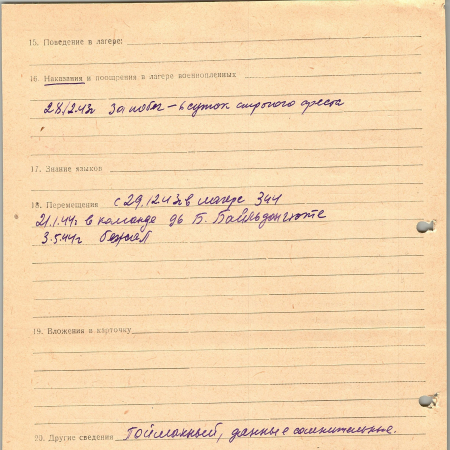 15. Поведение в лагере:
16. Наказания и поощрения в лагере военнопленных
28.12.43г За побег – 6 суток строгого ареста
17. Знание языков
18. Перемещения с 29.12.43г в лагере 344
21.1.44г. в команде Б. Байльдонгютте
3.5.44г бежал
19. Вложения в карточку
20. Другие сведения Пойманный, данные сомнительные.